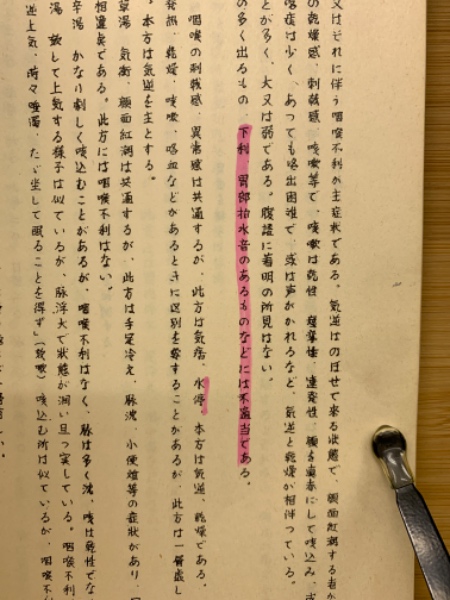 又はそれに伴う咽喉不利が主症状である。気逆はのぼせて来る状態で、顔面紅潮する者が
の乾燥感、刺戟感、咳嗽等で、咳嗽は乾性、痙攣性、連発性、顔を真赤にして咳込み、
喀痰は少く、あっても喀出困難で、或は声がかれるなど、気逆と乾燥が相伴っている。
とが多く、大又は弱である。腹證に著明の所見はない。
の多く出るもの、下利、胃部拍水音のあるものなどには不適当である。
咽喉の刺戟感、異常感は共通するが、此方は気痞、水停、本方は気逆、乾燥である。
発熱、乾燥、咳嗽、喀血などがあるときに区別を要することがあるが、此方は一層虚し
、本方は気逆を主とする。
草湯 気衝、顔面紅潮は共通するが、此方は手足冷え、脉沈、小便難等の症状があり、
相違点である。此方には咽喉不利はない。
辛湯 かなり劇しく咳込むことがあるが、咽喉不利はなく、脉は多く沈、咳は乾性でな
湯 欬して上気する様子は似ているが、脉浮大で状態が 且つ実している。咽喉不利
逆上気、時々唾濁、たゞ坐して眠ることを得ず」(欬嗽)咳込む所は似ているが、咽喉不利